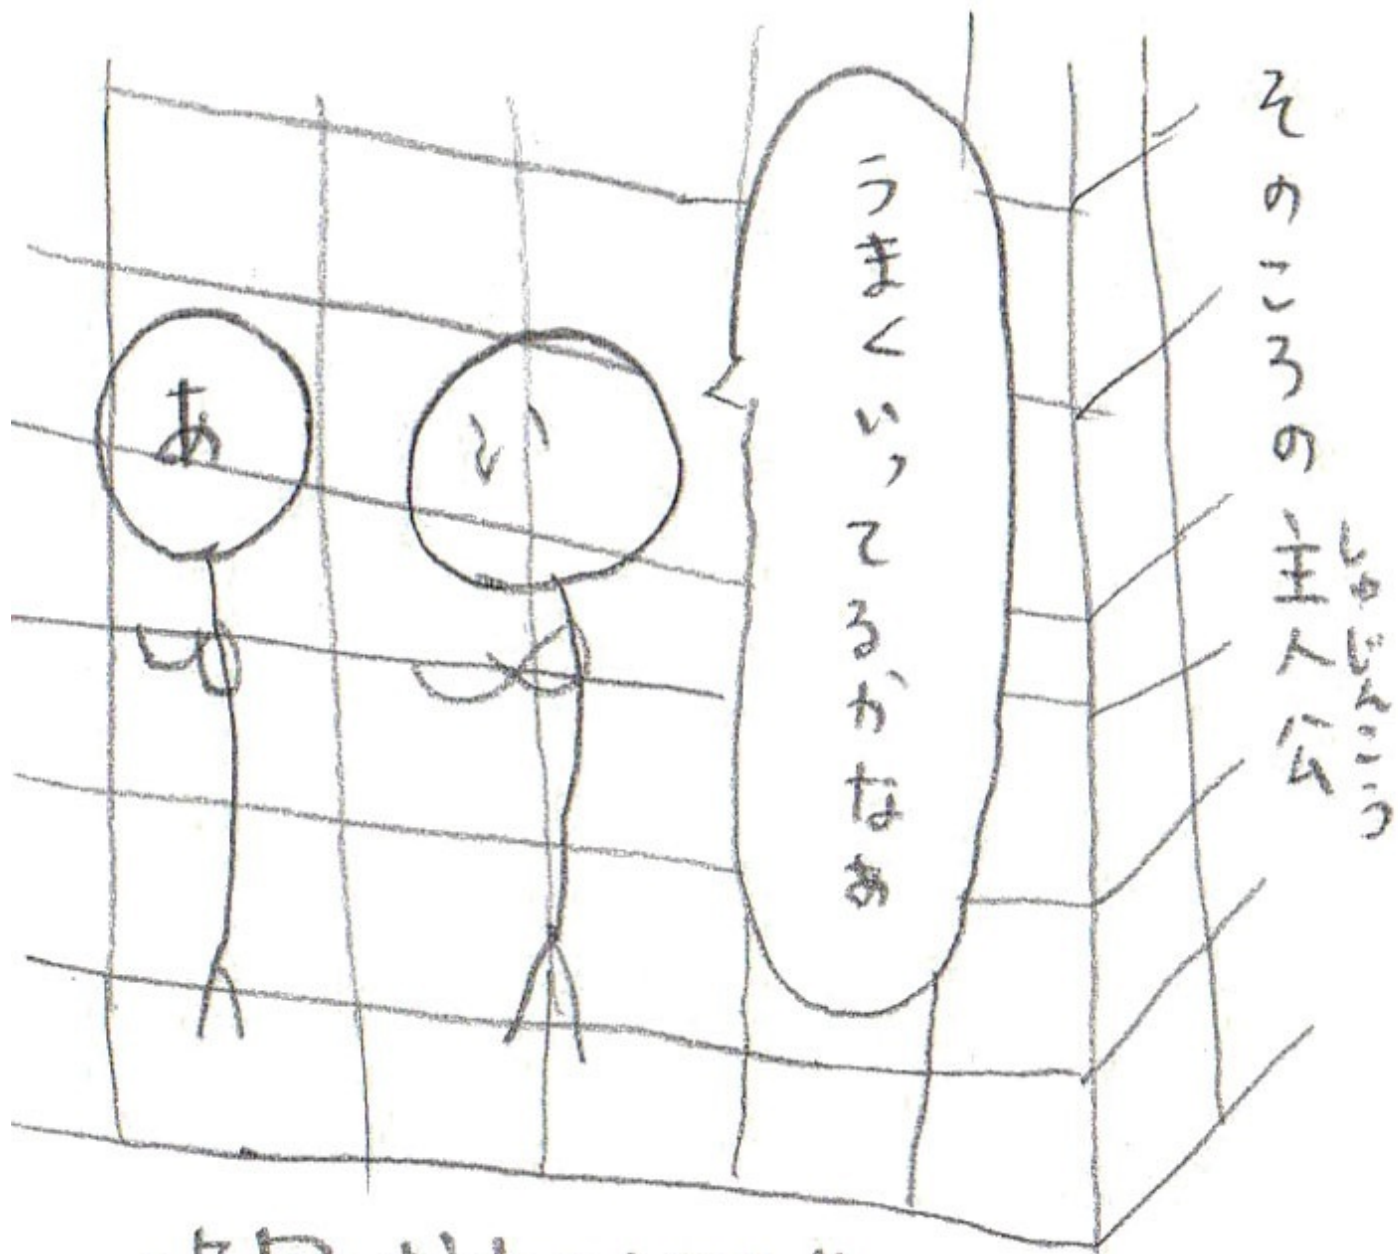 そのころの主人公
しゅじんこう
うまくいってるかなぁ
い
あ